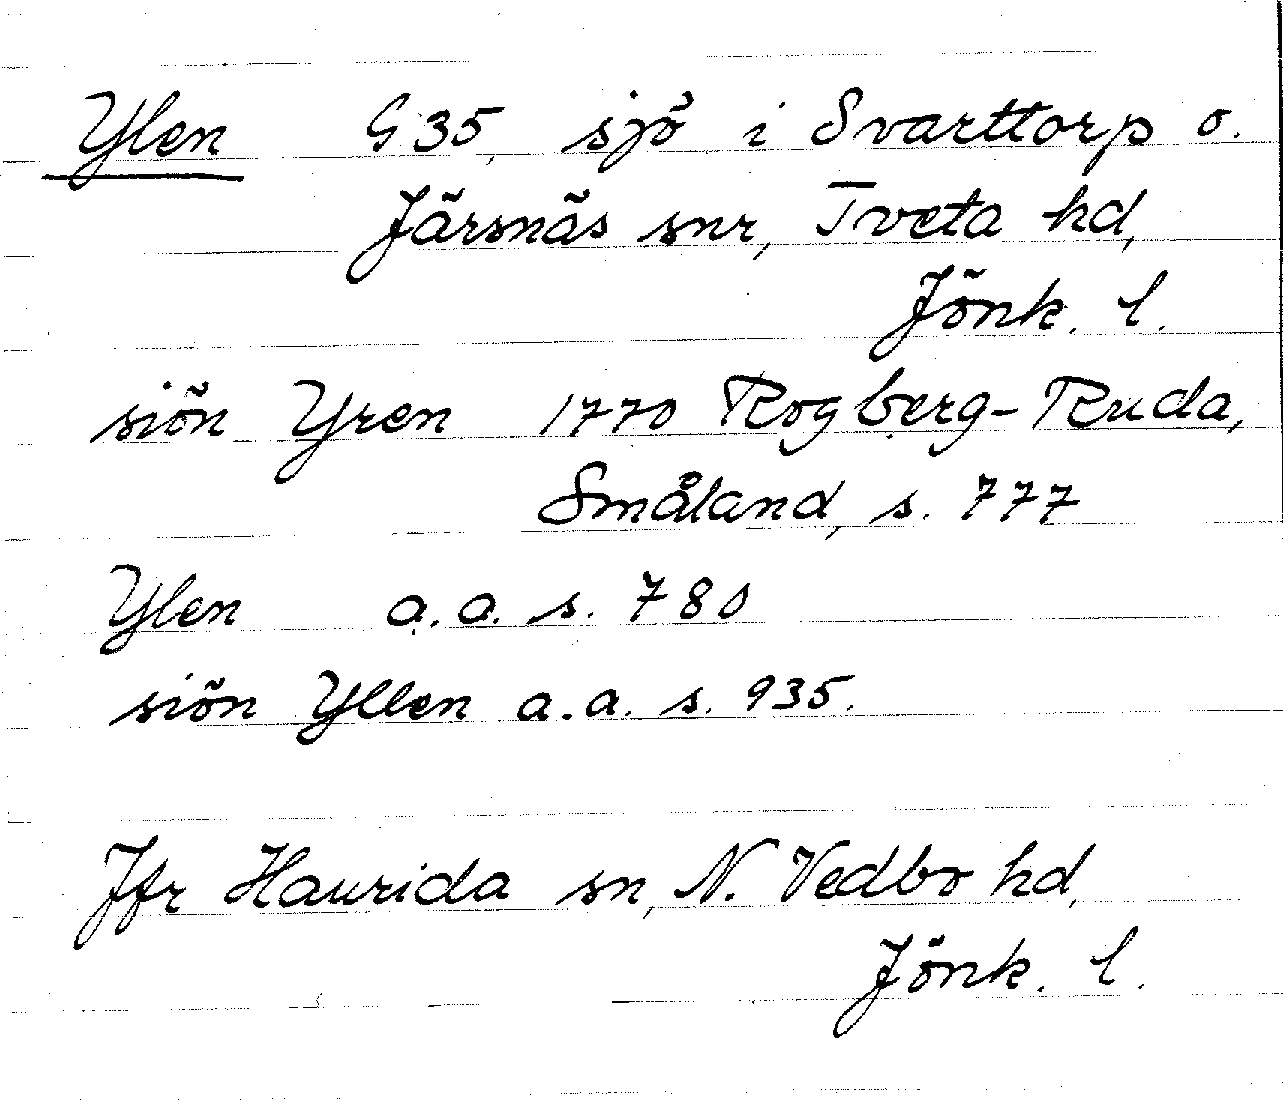 Ylen G 35, sjö i Svarttorp o.
Järsnäs snr, Tveta hd,
Jönk. l.
siön Yren 1770 Rogberg-Ruda,
Småland, s. 777
Ylen a.a. s. 780
siön Yllen a.a. s. 935.
Jfr Haurida sn, N. Vedbo hd,
Jönk. l.